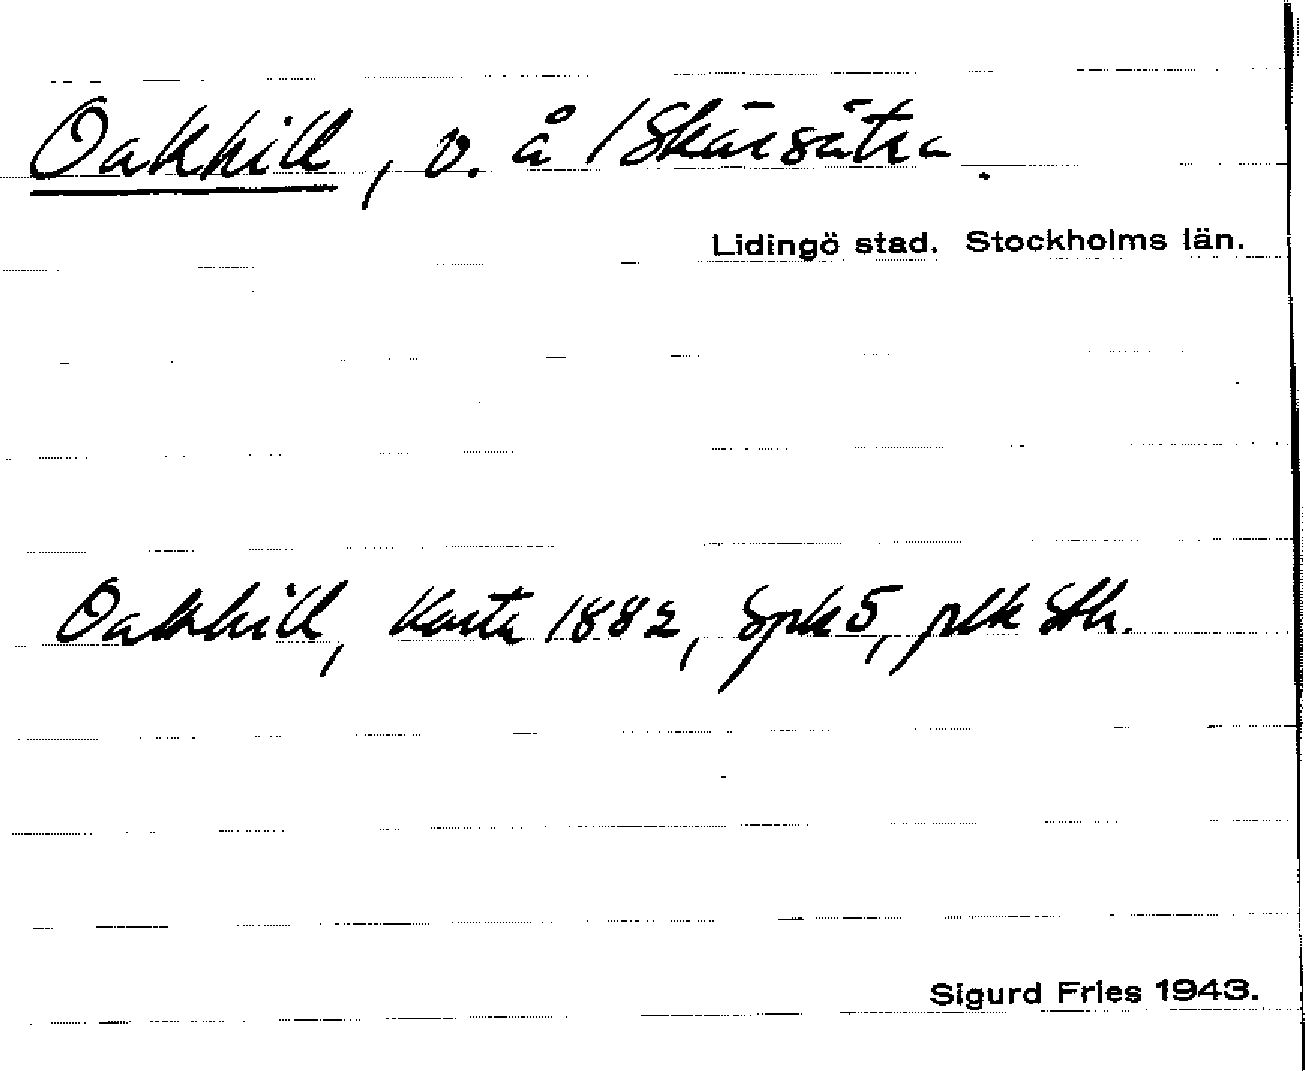 Oakhill, v. å /Skärsätra.
Lidingö stad. Stockholms län.
Oakhill, Karta 1882, Spk 5, plk Sth.
Sigurd Fries 1943.